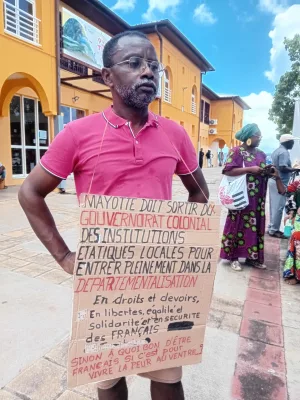 MAYOTTE DOIT SORTIR DU
GOUVERNORAT COLONIAL
DES INSTITUTIONS
ETATIQUES LOCALES POUR
ENTRER PLEINEMENT DANS LA
DEPARTEMENTALISATION
En droits et devoirs,
En libertes, égalité et
solidarité et en SECURITE
des FRANÇAIS
SINON À QUOI BON D'ÊTRE
FRANÇAIS SI C'EST POUR
VIVRE LA PEUR AU VENTRE?